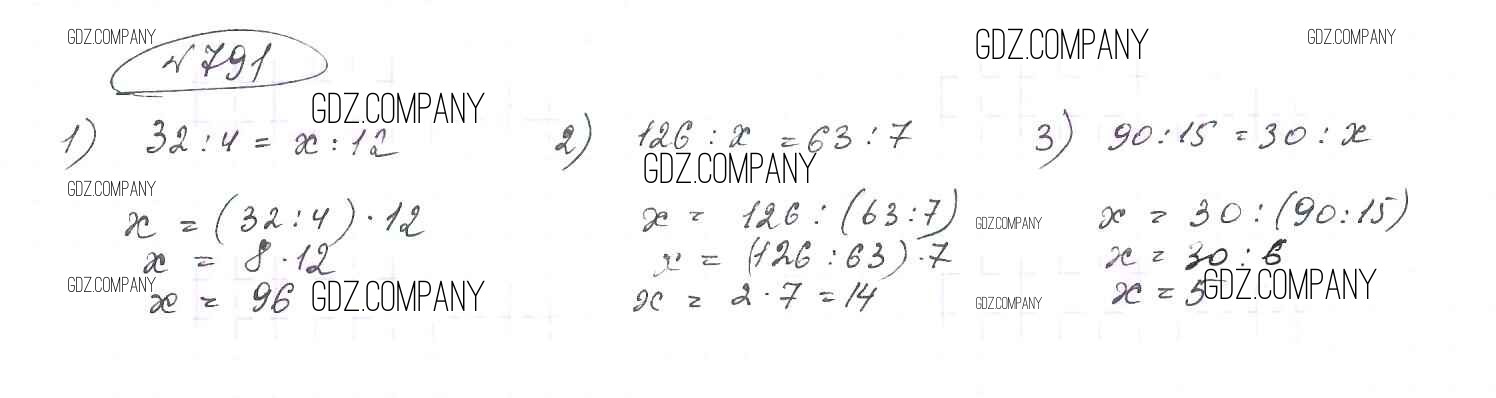 GDZ.COMPANY GDZ.COMPANY GDZ.COMPANY
№ 791
GDZ.COMPANY
1) 32 : 4 = x : 12
x = (32 : 4) · 12
x = 8 · 12
x = 96
2) 126 : x = 63 : 7
x = 126 : (63 : 7)
x = (126 : 63) · 7
x = 2 · 7 = 14
3) 90 : 15 = 30 : x
x = 30 : (90 : 15)
x = 30 : 6
x = 5
GDZ.COMPANY
GDZ.COMPANY
GDZ.COMPANY
GDZ.COMPANY
GDZ.COMPANY
GDZ.COMPANY
GDZ.COMPANY